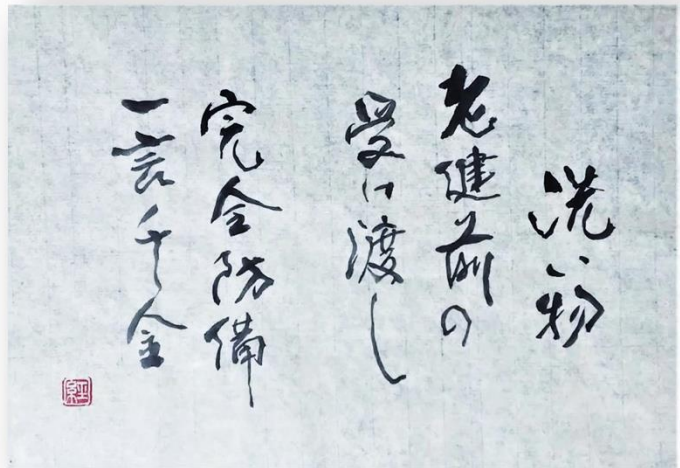 洗い物
老健前の
受け渡し
完全防備
一言千金
經